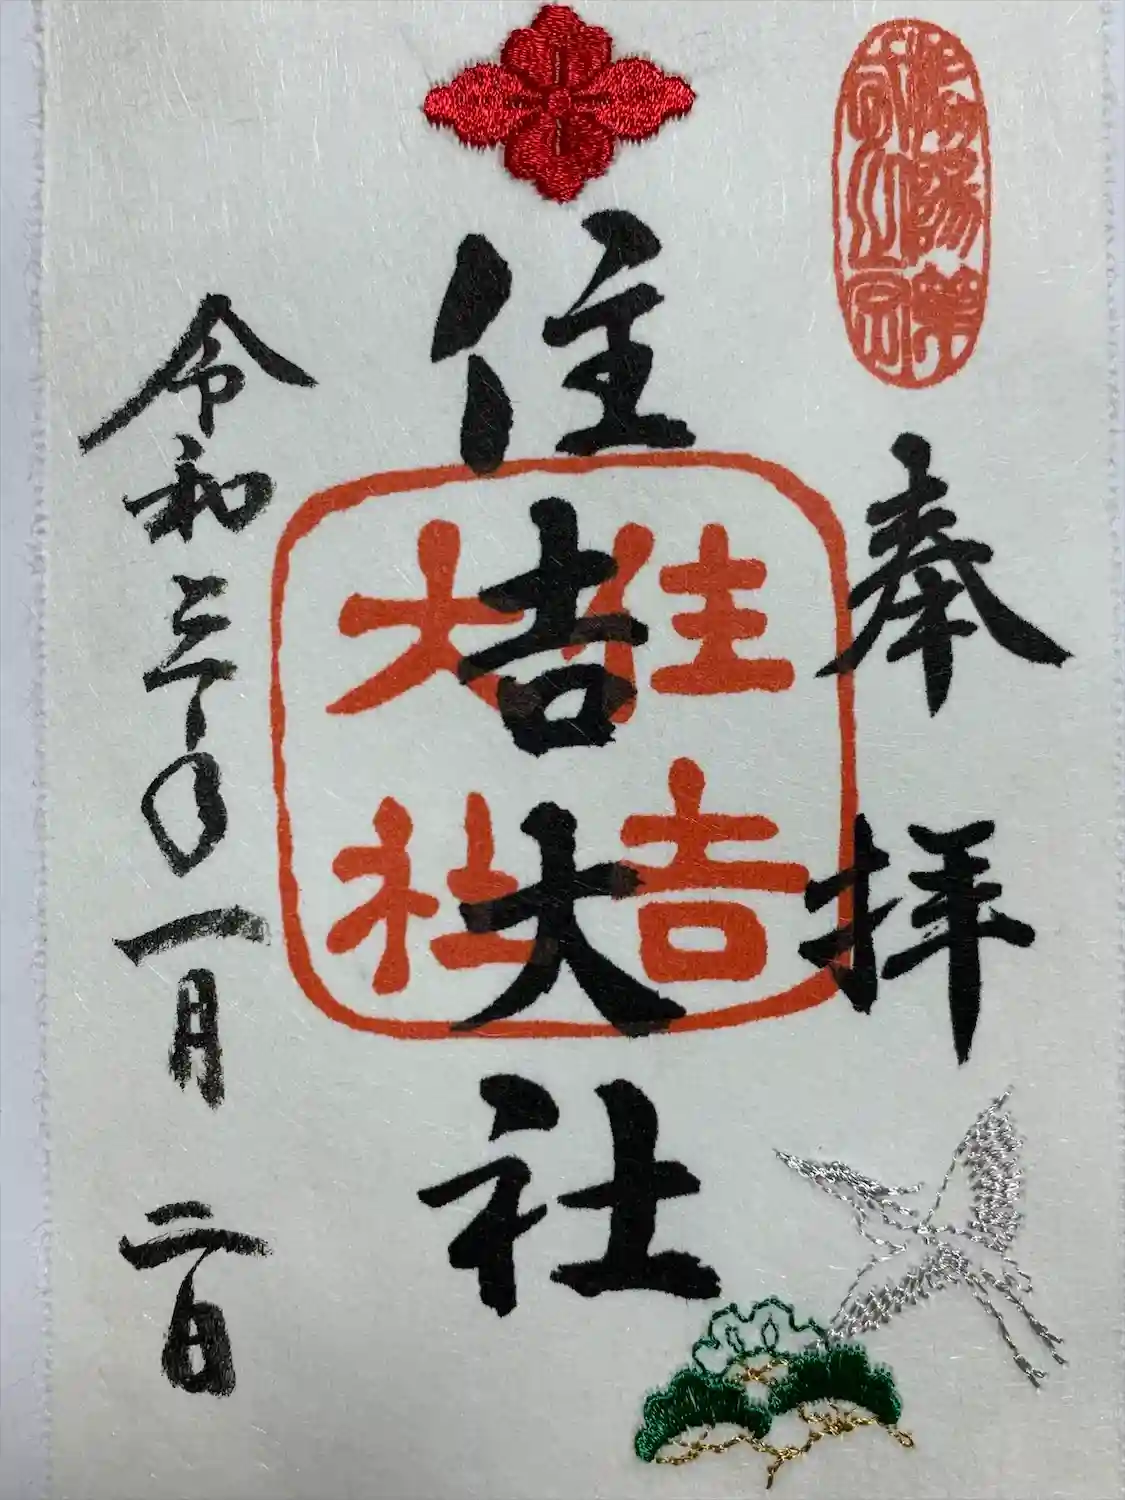 奉拝
住吉大社
住吉
大社
令和三年一月二日